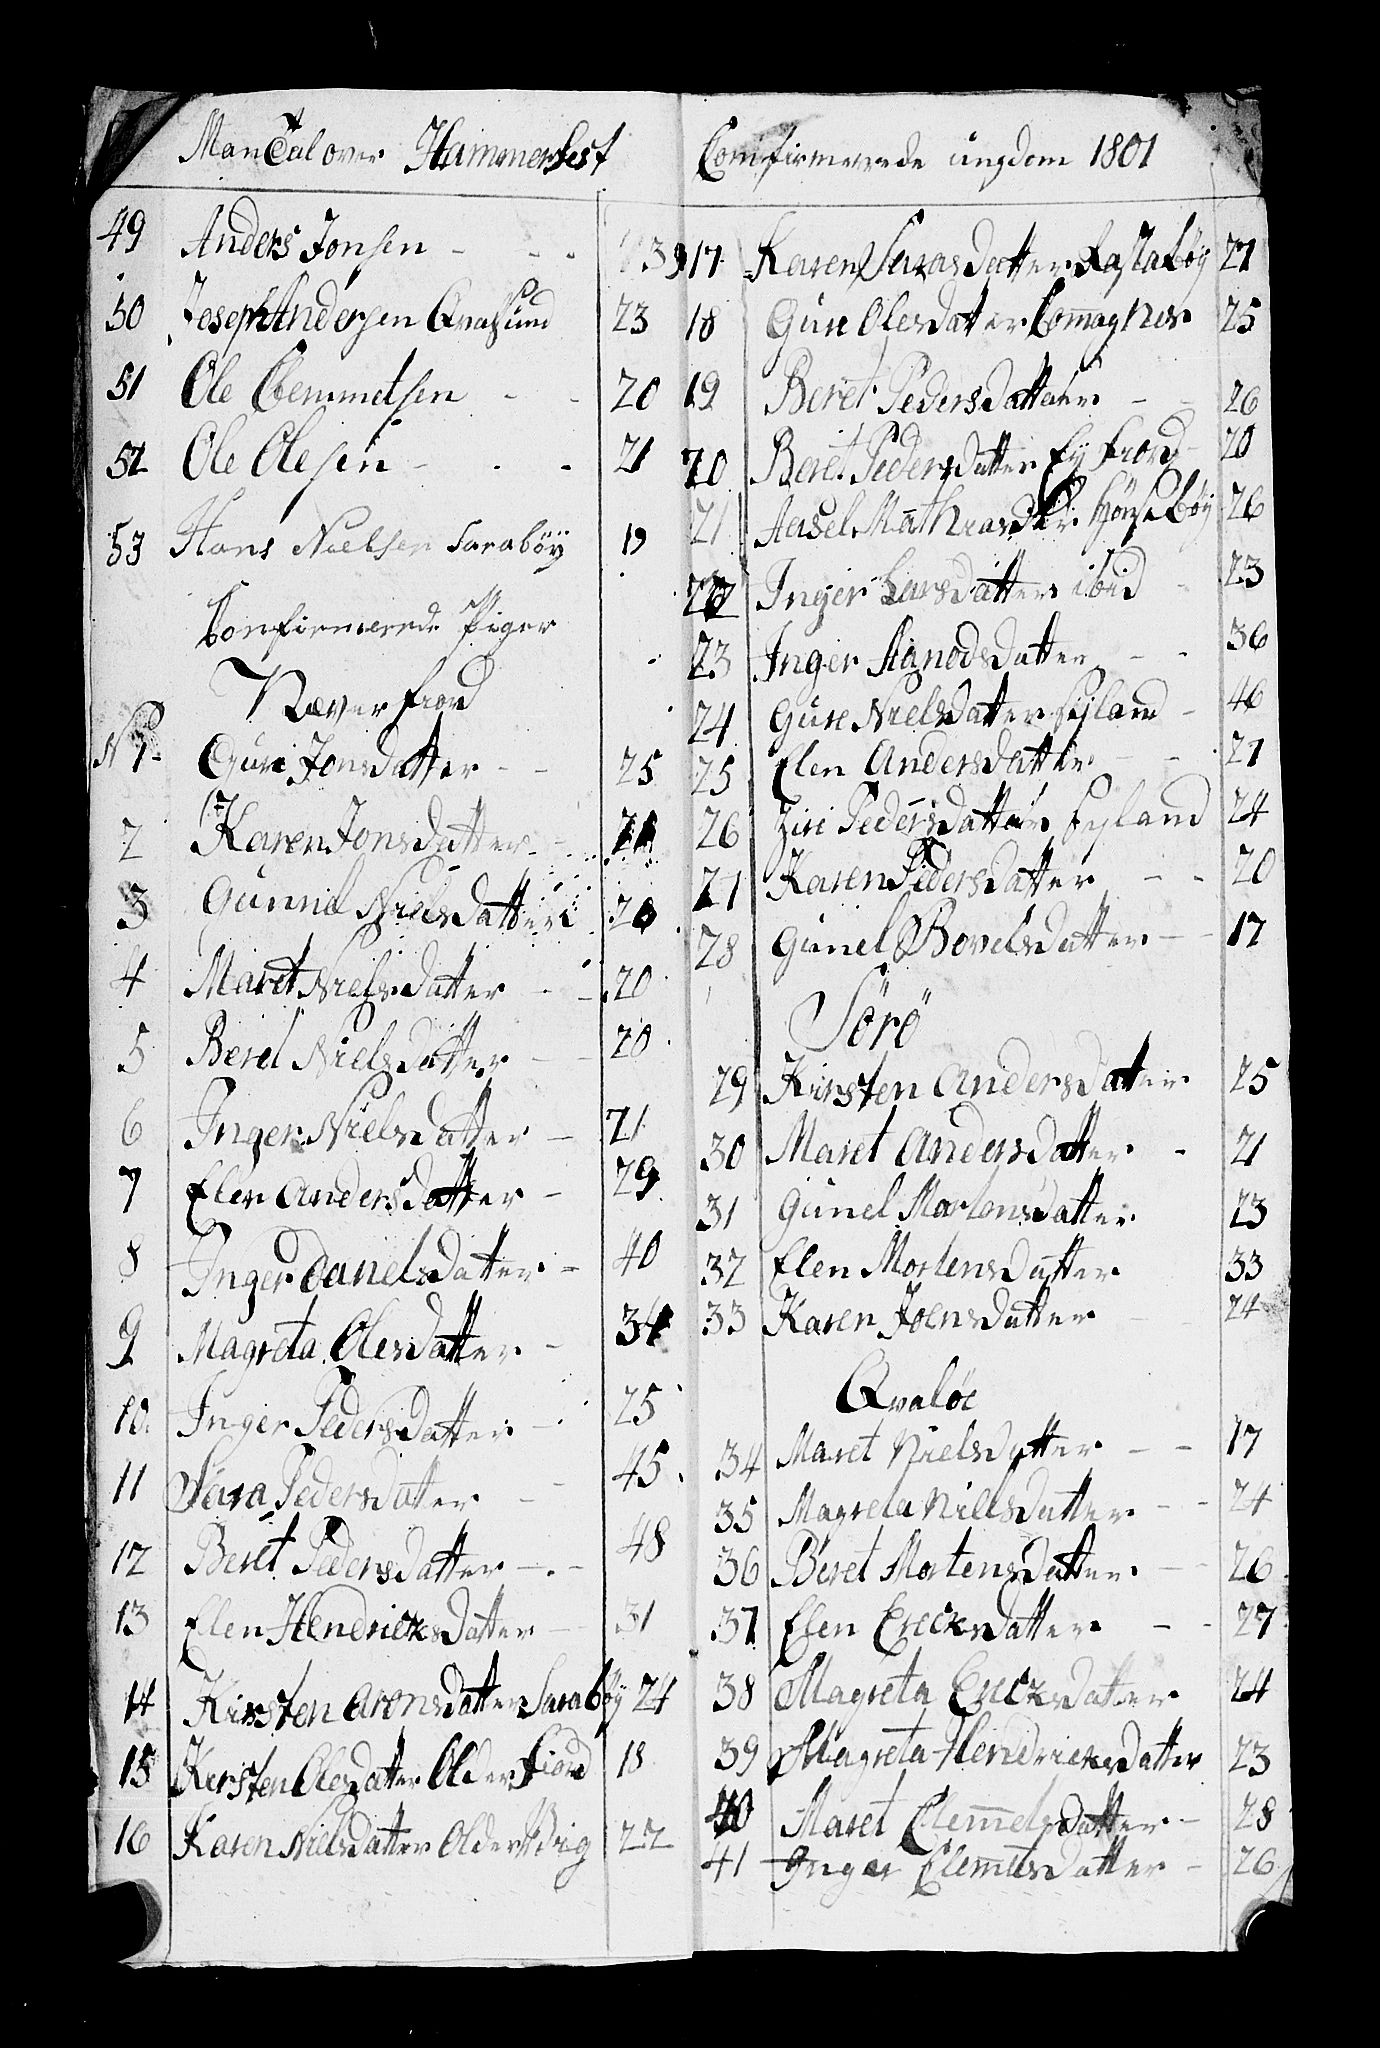 ManTal over Hammerfest
49 Anders Jonsen - - - 39
50 Joseph Andersen Qvalsund 23
51 Ole Clemmetsen - - 20
52 Ole Olesen - - - 21
53 Hans Nielsen Sarabøÿ 19
Confirmerede Piger
Næverfiord
N 1. Guri Jonsdatter - - 25
2 Karen Jonsdatter - 21
3 Gunnil Nielsdatter 20
4 Maret Nielsdatter - - 20
5 Beret Nielsdatter - - 20
6 Inger Nielsdatter - 21
7 Elen Andersdatter - 29
8 Inger Danielsdatter - 40
9 Magreta Olesdatter - 34
10. Inger Pedersdatter - 25
11 Sara Pedersdatter - - 45
12 Beret Pedersdatter - - 48
13 Elen Hendricksdatter - 31
14 Kirsten Aronsdatter Sarabøÿ 24
15 Kersten Olesdatter Olderfiord 18
16 Karen Nielsdatter Older Vig 22
Comfirmerede ungdom 1801
17 Karen Sarasdatter 27
18 Guri Olesdatter Komagnes 25
19 Beret Pedersdatter - - 26
20 Beret Pedersdatter Eÿfiord - 20
21 Aasel Mathiasdtr Hønsebøÿ 26
22 Inger Larsdatter ibid - 23
23 Inger Aanodsdatter - - 36
24 Guri Nielsdatter Eÿland - 46
25 Elen Andersdatter - - 21
26 Ziri Pedersdatter Eÿland 24
27 Karen Pedersdatter - - 20
28 Gunel Bovelsdatter - - 17
Sörö
29 Kirsten Andersdatter 25
30 Maret Andersdatter - 21
31 Gunel Mortensdatter 23
32 Elen Mortensdatter 33
33 Karen Joensdatter - - 24
Qvaløe
34 Maret Nielsdatter - - 17
35 Magreta Nielsdatter - - 24
36 Beret Mortensdatter - - 26
37 Elen Ericksdatter - - 27
38 Magreta Ericksdatter 24
39 Magreta Hendricksdatter 23
40 Maret Clem̄etsdatter - 28
41 Inger Clem̄etsdatter - 26